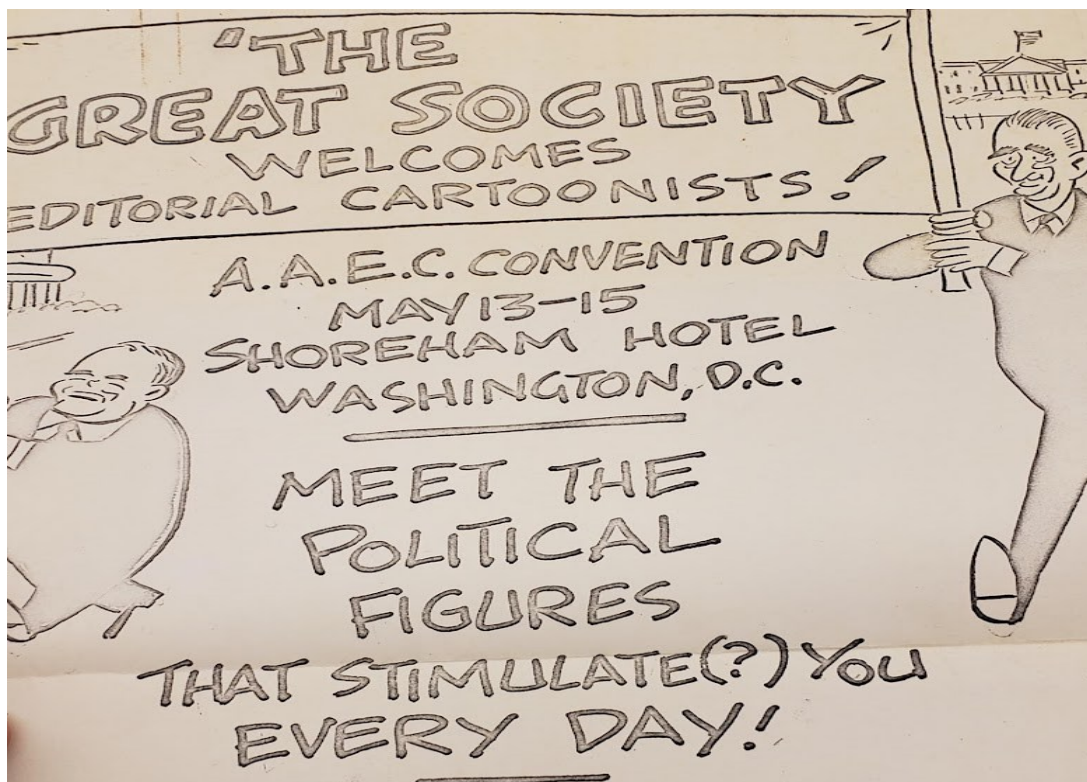 'THE
GREAT SOCIETY
WELCOMES
EDITORIAL CARTOONISTS!
A.A.E.C. CONVENTION
MAY 13-15
SHOREHAM HOTEL
WASHINGTON, D.C.
MEET THE
POLITICAL
FIGURES
THAT STIMULATE(?) YOU
EVERY DAY!